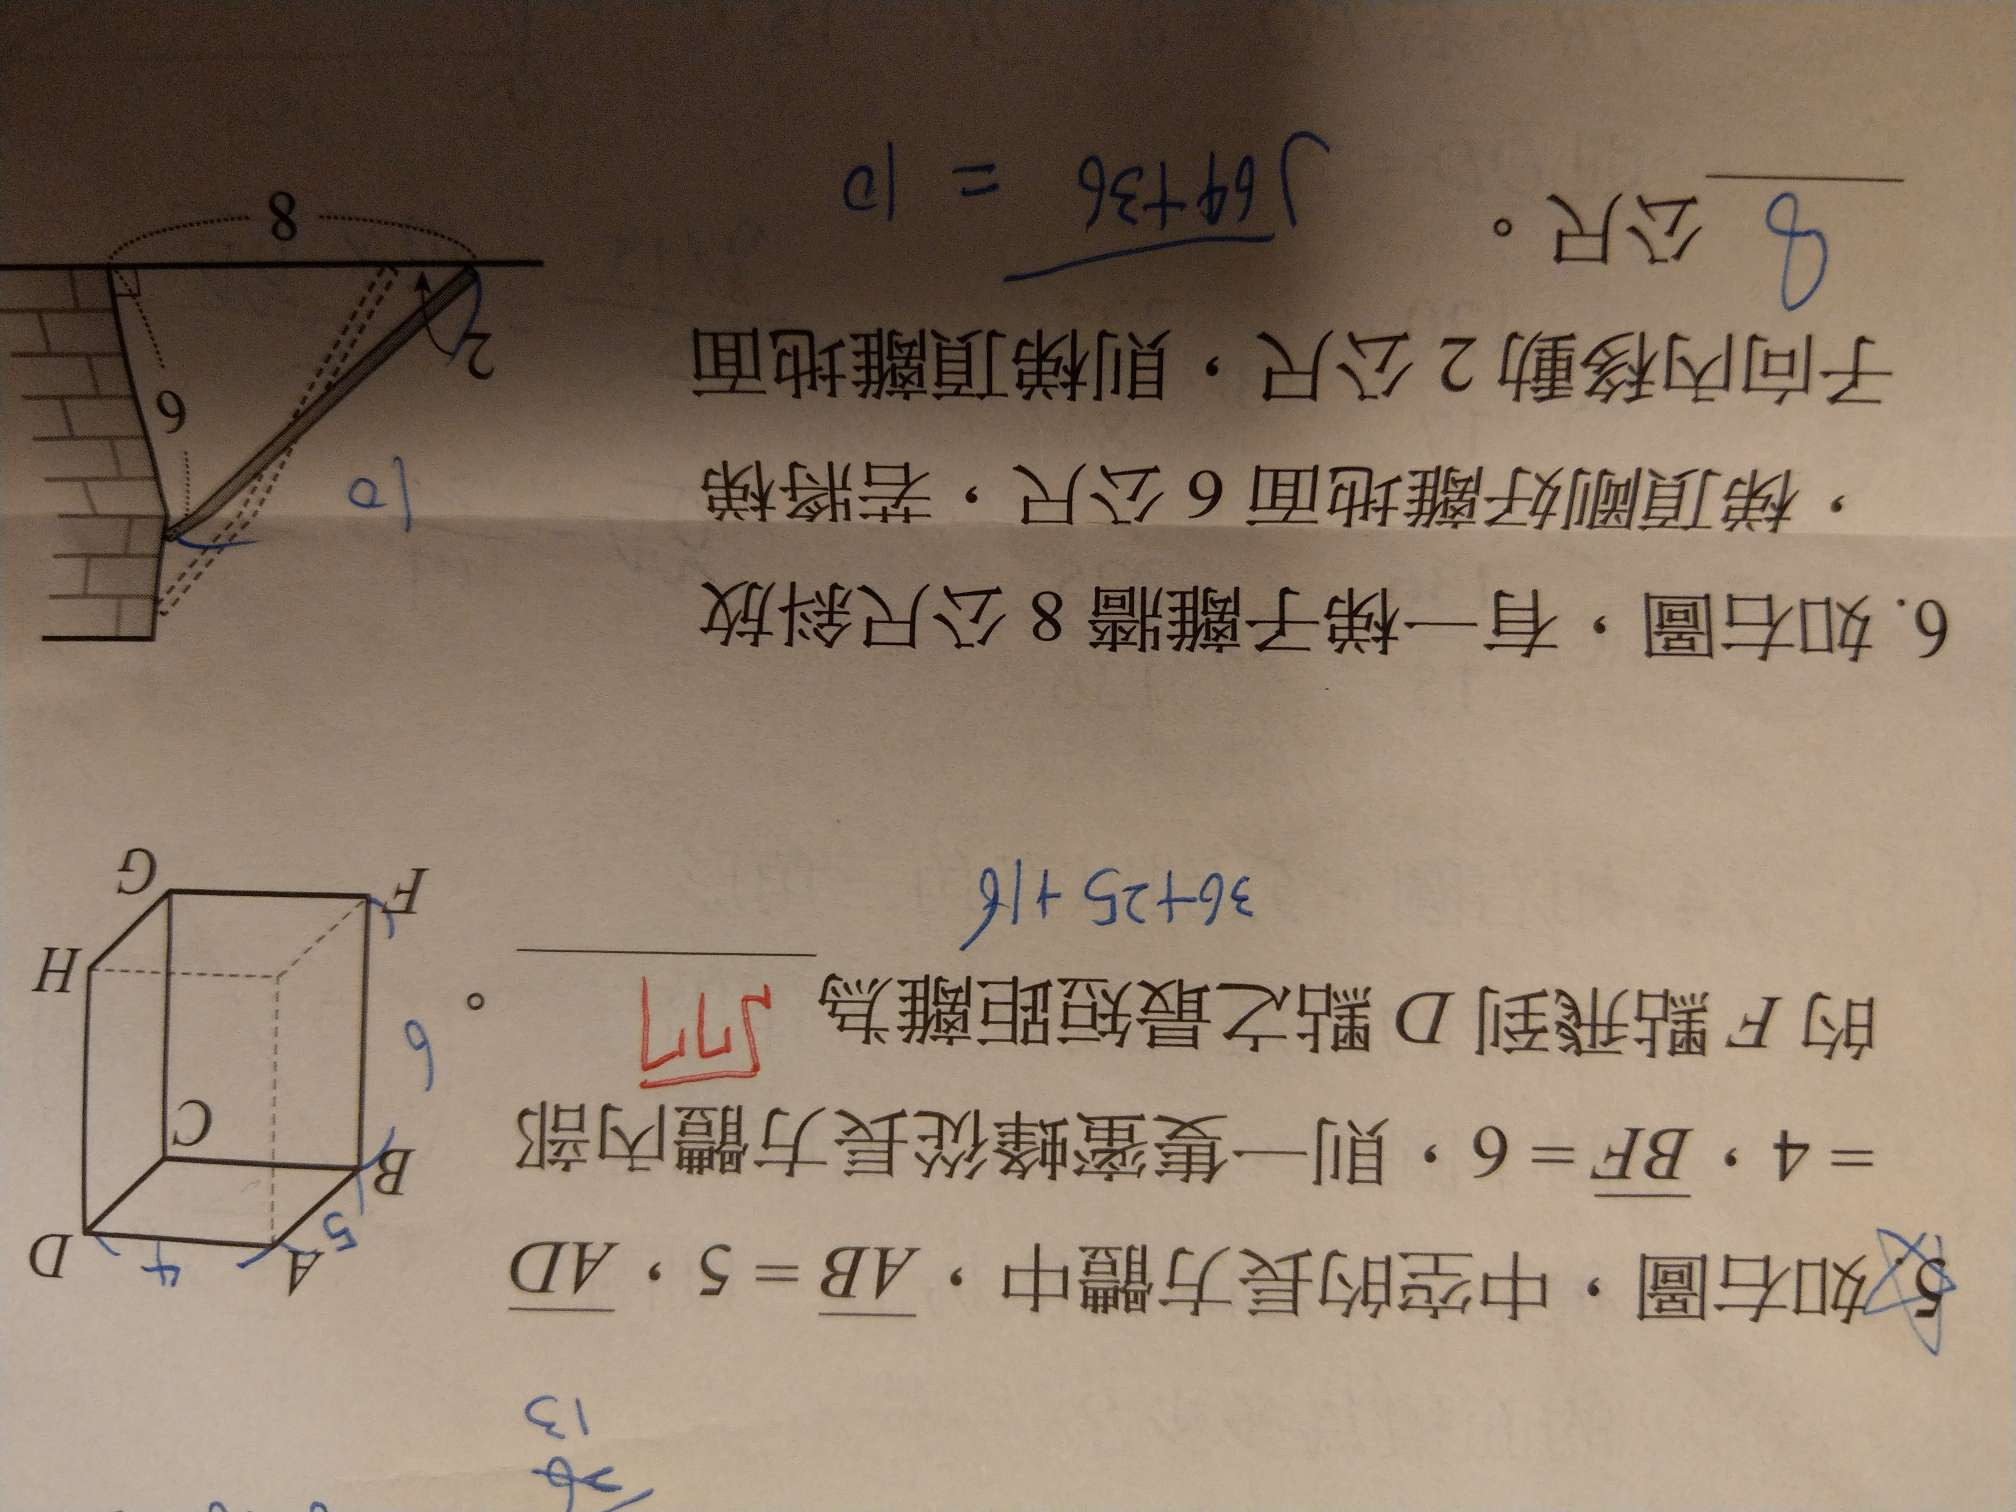 13
5. 如右圖，中空的長方體中，AB = 5，AD
= 4，BF = 6，則一隻蜜蜂從長方體內部
的 F 點飛到 D 點之最短距離為 √77 。
36+25+16
A
4
D
5
B
C
6
H
F
G
6. 如右圖，有一梯子離牆 8 公尺斜放
，梯頂剛好離地面 6 公尺，若將梯
子向內移動 2 公尺，則梯頂離地面
8 公尺。
√64+36 = 10
10
6
2
8